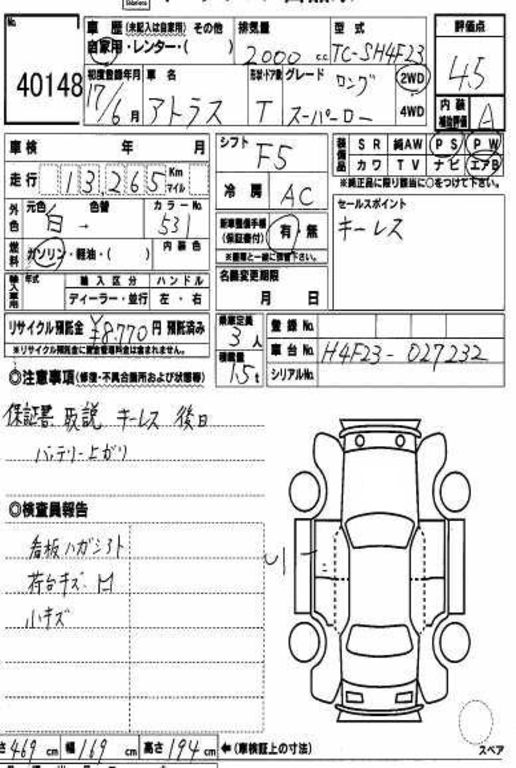 No.
40148
車歴 (未記入は自家用) その他
自家用・レンター・( )
排気量
2000 cc
型式
TC-SH4F23
評価点
4.5
初度登録年月
17/6月
車名
アトラス
形状・ドア数
T
グレード
ロング
スーパーロー
2WD
4WD
内装
補助評価
A
車検 年 月
走行 13,265 Km マイル
外色
元色 色替
白 →
カラーNo.
531
燃料
ガソリン・軽油・( )
内装色
輸入車用
年式
輸入区分
ディーラー・並行
ハンドル
左・右
リサイクル預託金 ¥8,770円 預託済み
※リサイクル預託金に資金管理料金は含まれません。
シフト
F5
冷房
AC
新車整備手帳
(保証書付)
有・無
※書類と一緒に提出下さい。
名義変更期限
月 日
乗車定員
3人
積載量
1.5t
装備品
SR 純AW PS PW
カワ TV ナビ エアB
※純正品に限り該当に○をつけて下さい。
セールスポイント
キーレス
登録No.
車台No. H4F23-027232
シリアルNo.
◎注意事項 (修復・不具合箇所および状態等)
保証書 取説 キーレス 後日
バッテリー上がり
◎検査員報告
看板ハガシアト
荷台キズ 凹
小キズ
U1
スペア
さ 469 cm 幅 169 cm 高さ 194 cm ←(車検証上の寸法)